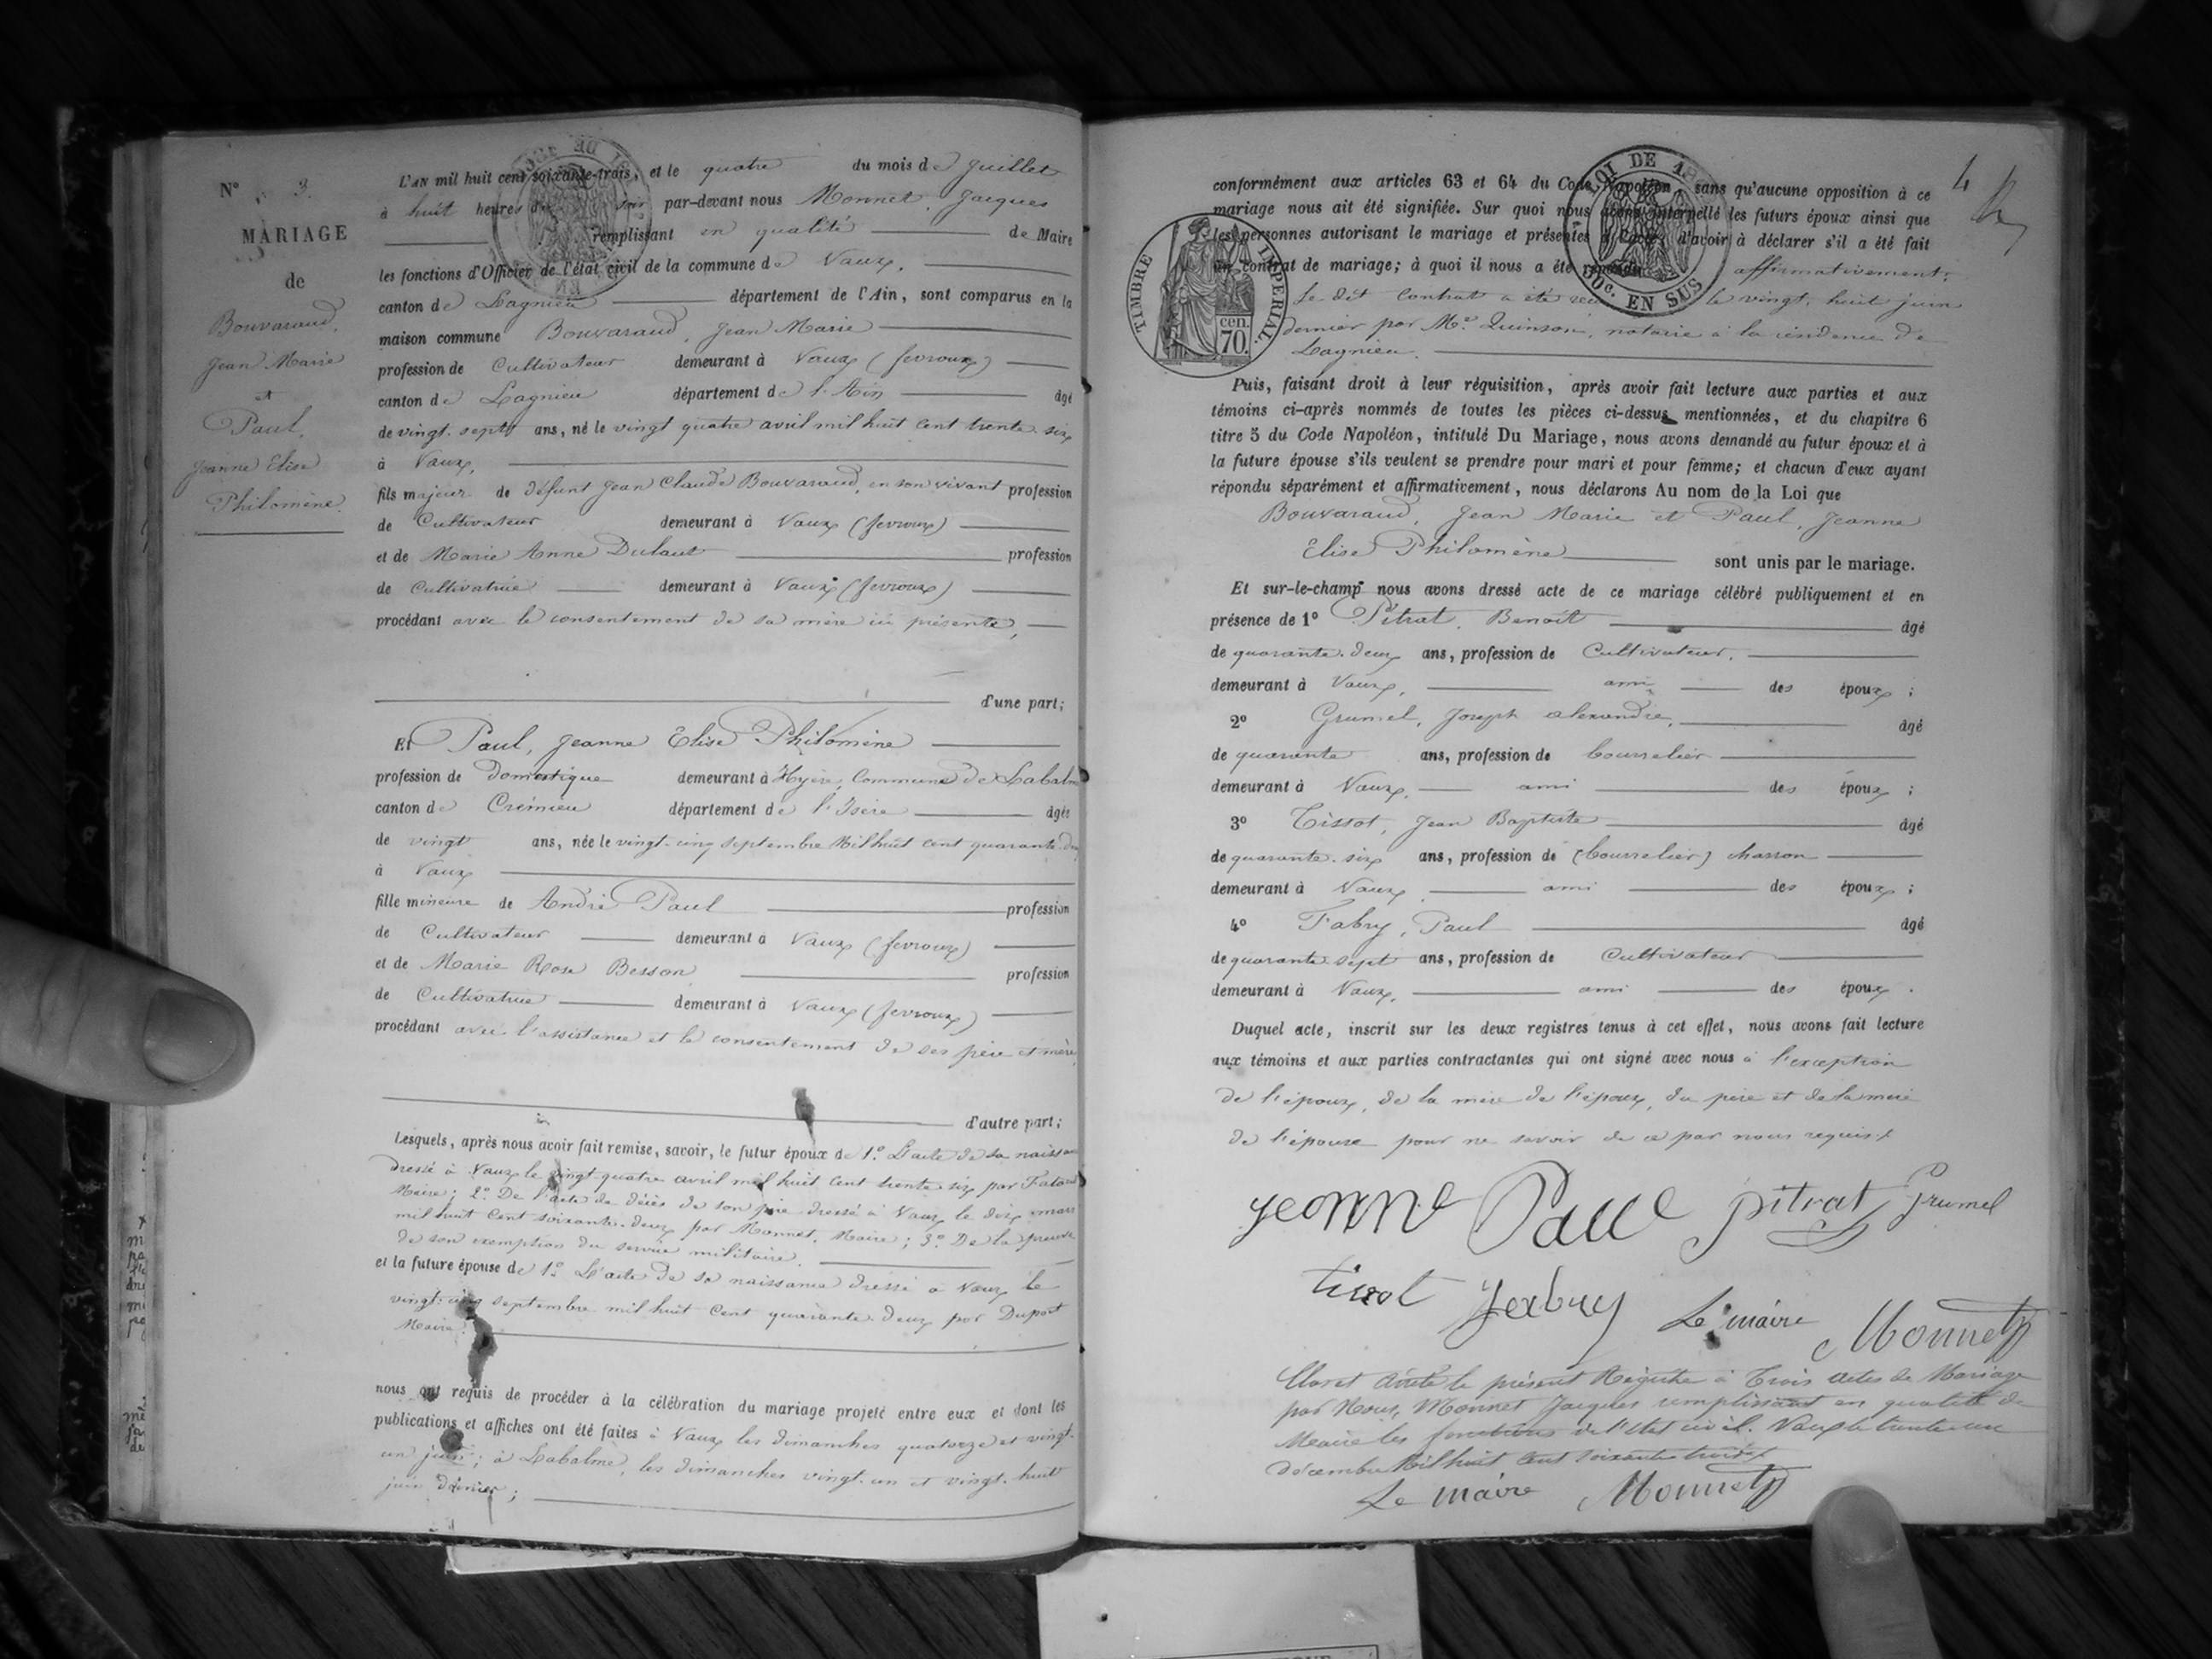 N° 3.
MARIAGE
de
Bouvaraud,
Jean Marie
et
Paul,
Jeanne Elise
Philomène.
L'AN mil huit cent soixante-trois, et le quatre du mois de Juillet
à huit heures du soir par-devant nous Monnet, Jacques
remplissant en qualité de Maire
les fonctions d'Officier de l'état civil de la commune de Vaux,
canton de Lagnieu département de l'Ain, sont comparus en la
maison commune Bouvaraud, Jean Marie
profession de Cultivateur demeurant à Vaux (fevroux)
canton de Lagnieu département de l'Ain âgé
de vingt-sept ans, né le vingt quatre avril mil huit cent trente-six
à Vaux,
fils majeur de défunt Jean Claude Bouvaraud, en son vivant profession
de Cultivateur demeurant à Vaux (fevroux)
et de Marie Anne Dulaut profession
de Cultivatrice demeurant à Vaux (fevroux)
procédant avec le consentement de sa mère ici présente,
d'une part;
Et Paul, Jeanne Elise Philomène
profession de domestique demeurant à Hyère, Commune de Labalme
canton de Crémieu département de l'Isère âgée
de vingt ans, née le vingt-cinq septembre Mil huit cent quarante-deux
à Vaux
fille mineure de André Paul profession
de Cultivateur demeurant à Vaux (fevroux)
et de Marie Rose Besson profession
de Cultivatrice demeurant à Vaux (fevroux)
procédant avec l'assistance et le consentement de ses père et mère
d'autre part;
Lesquels, après nous avoir fait remise, savoir, le futur époux de 1° L'acte de sa naissance
dressé à Vaux le vingt-quatre avril mil huit cent trente six par
Maire; 2° De l'acte de décès de son père dressé à Vaux le dix mars
mil huit cent soixante-deux par Monnet, Maire; 3° De la preuve
de son exemption du service militaire.
et la future épouse de 1° L'acte de sa naissance dressé à Vaux le
vingt-cinq septembre mil huit cent quarante-deux par Dupont
Maire.
nous ont requis de procéder à la célébration du mariage projeté entre eux et dont les
publications et affiches ont été faites à Vaux les dimanches quatorze et vingt-
un juin; à Labalme, les dimanches vingt-un et vingt-huit
juin dernier;
4
conformément aux articles 63 et 64 du Code Napoléon, sans qu'aucune opposition à ce
mariage nous ait été signifiée. Sur quoi nous avons interpellé les futurs époux ainsi que
les personnes autorisant le mariage et présentes à l'acte, d'avoir à déclarer s'il a été fait
un contrat de mariage; à quoi il nous a été répondu affirmativement.
Le dit contrat a été reçu le vingt-huit juin
dernier par Me Quinson, notaire à la résidence de
Lagnieu.
TIMBRE IMPERIAL.
cen.
70.
LOI DE
EN SUS
Puis, faisant droit à leur réquisition, après avoir fait lecture aux parties et aux
témoins ci-après nommés de toutes les pièces ci-dessus mentionnées, et du chapitre 6
titre 5 du Code Napoléon, intitulé Du Mariage, nous avons demandé au futur époux et à
la future épouse s'ils veulent se prendre pour mari et pour femme; et chacun d'eux ayant
répondu séparément et affirmativement, nous déclarons Au nom de la Loi que
Bouvaraud, Jean Marie et Paul, Jeanne
Elise Philomène sont unis par le mariage.
Et sur-le-champ nous avons dressé acte de ce mariage célébré publiquement et en
présence de 1° Pitrat, Benoît âgé
de quarante-deux ans, profession de Cultivateur,
demeurant à Vaux, ami des époux;
2° Grumel, Joseph alexandre, âgé
de quarante ans, profession de bourrelier
demeurant à Vaux, ami des époux;
3° Tissot, Jean Baptiste âgé
de quarante-six ans, profession de (bourrelier) charron
demeurant à Vaux, ami des époux;
4° Fabry, Paul âgé
de quarante-sept ans, profession de Cultivateur
demeurant à Vaux, ami des époux.
Duquel acte, inscrit sur les deux registres tenus à cet effet, nous avons fait lecture
aux témoins et aux parties contractantes qui ont signé avec nous à l'exception
de l'époux, de la mère de l'époux, du père et de la mère
de l'épouse pour ne savoir de ce par nous requis.
jeanne Paul pitrat Grumel
tissot fabry Le maire Monnet
Clos et arrêté le présent Registre à Trois actes de Mariage
par Nous, Monnet Jacques remplissant en qualité de
Maire les fonctions de l'état civil. Vaux le trente-un
décembre Mil huit cent soixante trois
Le maire Monnet